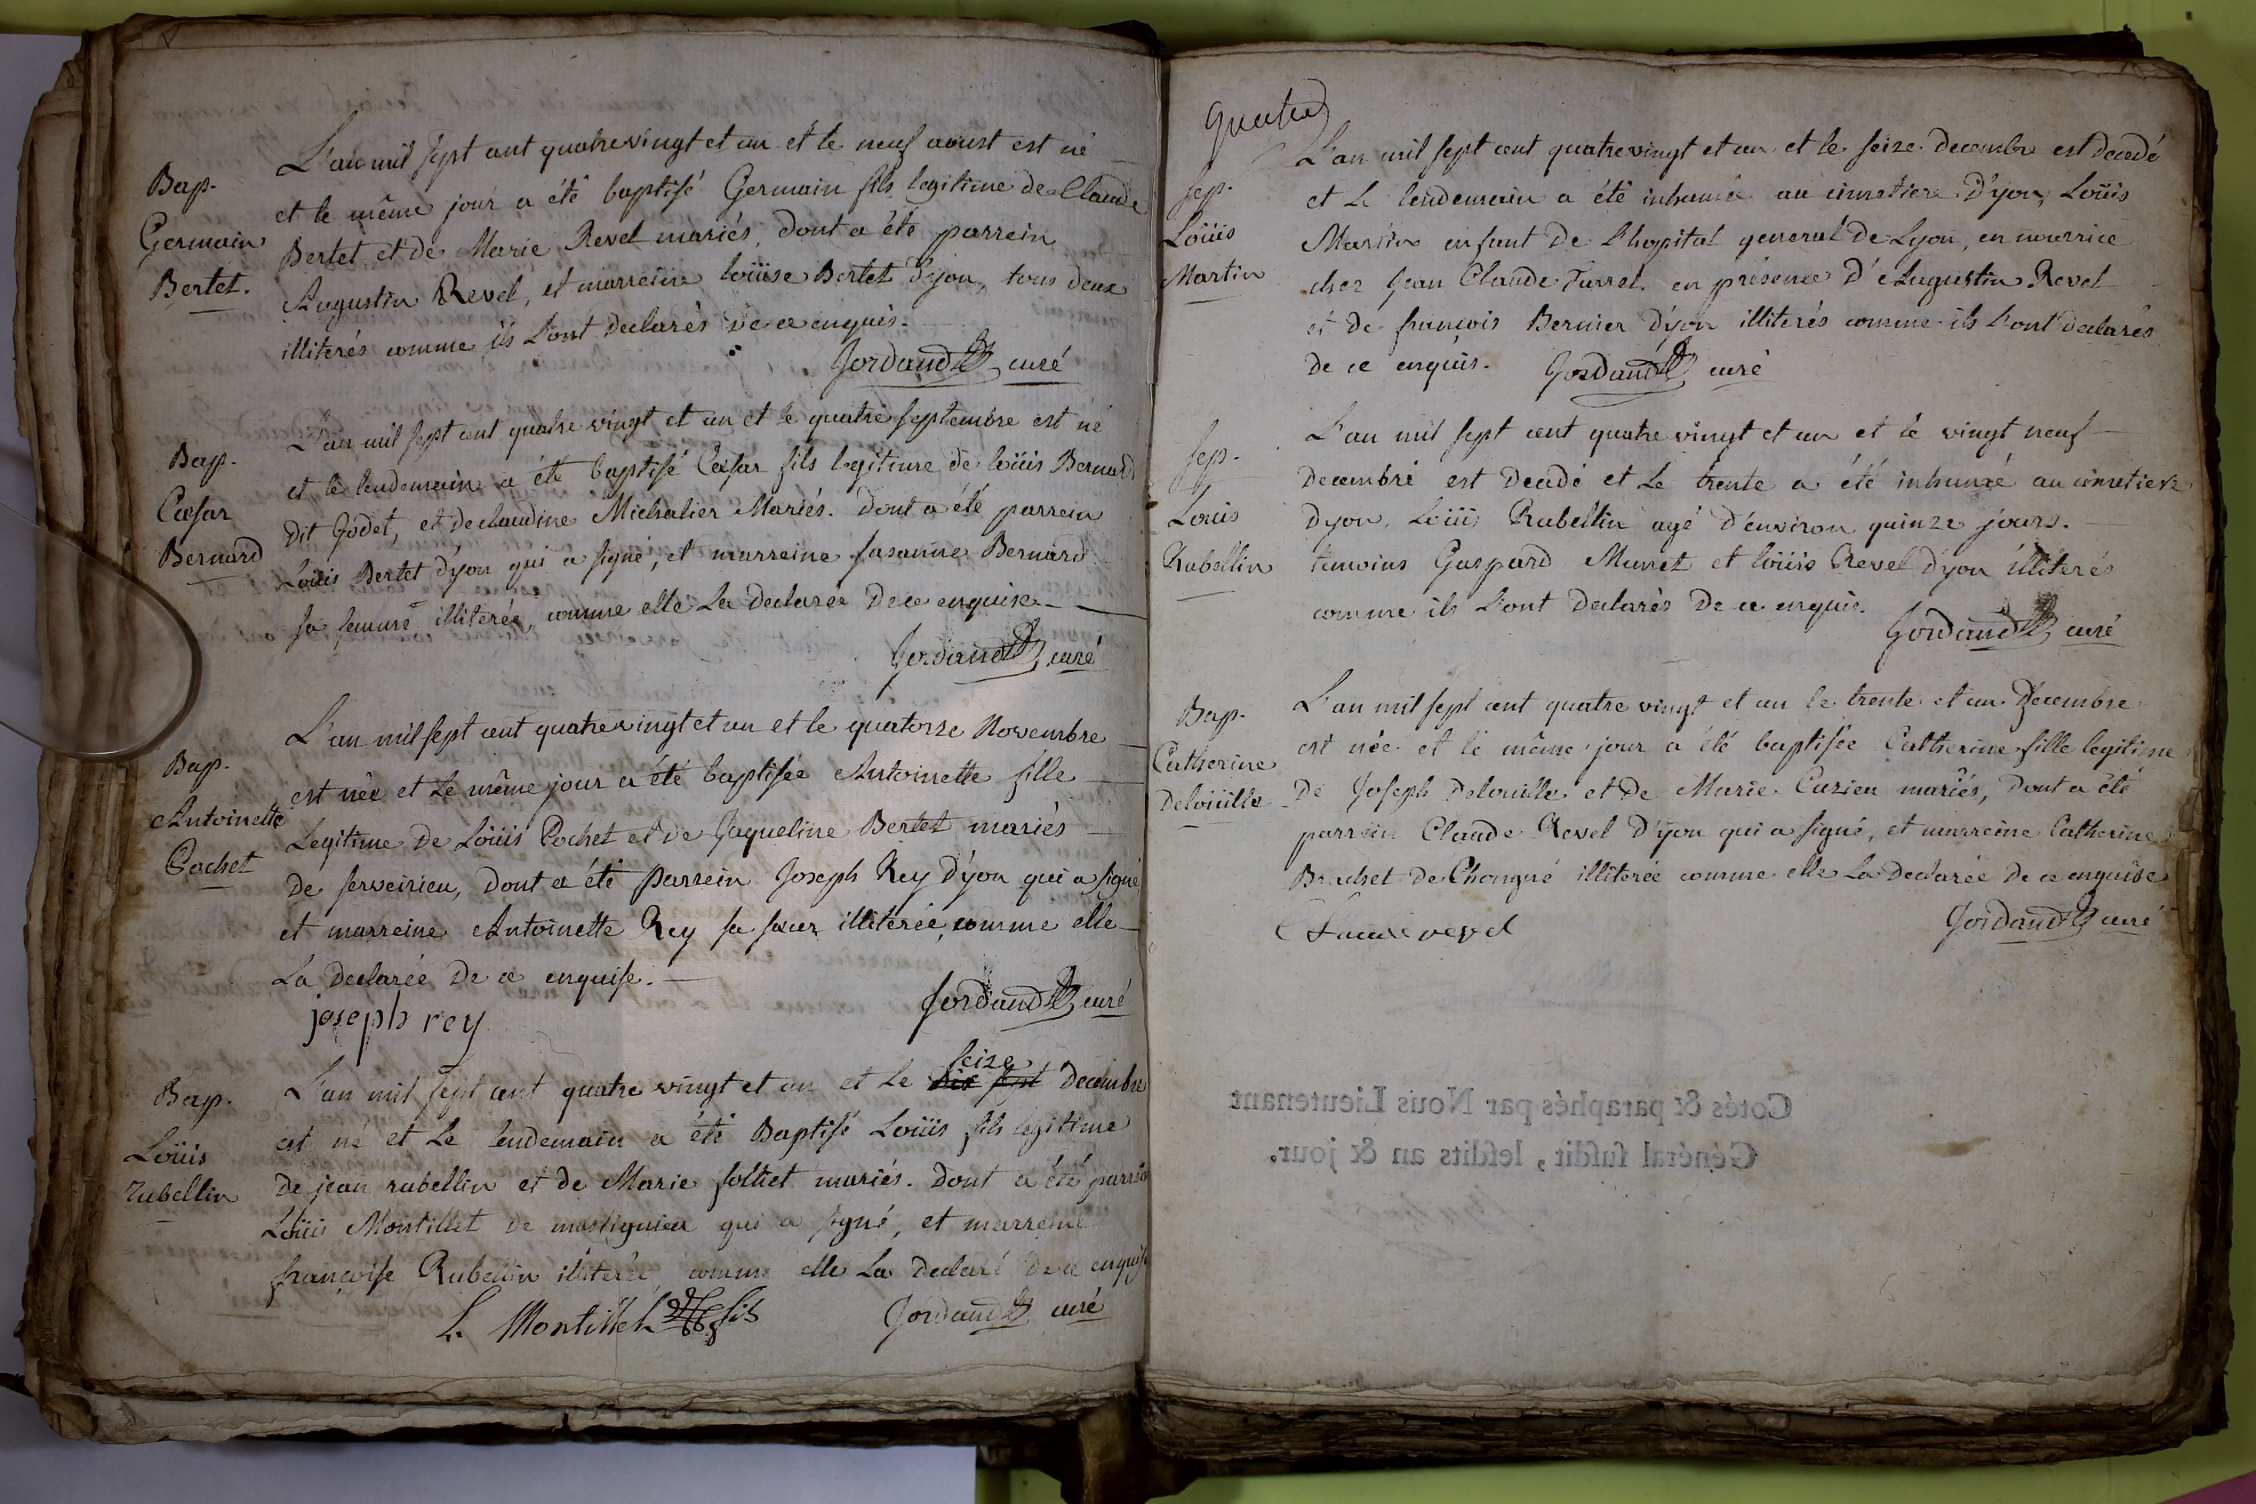 Bap.
Germain
Bertet.
L'an mil sept cent quatre vingt et un et le neuf aoust est né
et le même jour a été baptisé Germain fils legitime de Claude
Bertet et de Marie Revel mariés, dont a été parrein
Augustin Revel, et marreine loüise Bertet d'yon, tous deux
illiterés comme ils l'ont declarés de ce enquis.
Jordand curé
Bap.
Cæsar
Bernard
L'an mil sept cent quatre vingt et un et le quatre septembre est né
et le lendemain a été baptisé Cæsar fils legitime de loüis Bernard
dit Godet, et de claudine Michalier Mariés. dont a été parrein
Loüis Bertet d'yon qui a signé, et marreine susanne Bernard
sa femme illiterée, comme elle la declarée de ce enquise
Jordand curé
Bap.
Antoinette
Cochet
L'an mil sept cent quatre vingt et un et le quatorze Novembre
est née et le même jour a été baptisée Antoinette fille
legitime de Loüis Cochet et de Jaqueline Bertet mariés
de serveirieu, dont a été parrein Joseph Rey d'yon qui a signé
et marreine Antoinette Rey sa sœur illiterée, comme elle
la declarée de ce enquise.
Jordand curé
joseph rey
Bap.
Loüis
rubellin
seize
L'an mil sept cent quatre vingt et un et le dix sept decembre
est né et le lendemain a été Baptisé Loüis fils legitime
de jean rubellin et de Marie mariés. dont a été parrein
Loüis Montillet de qui a signé, et marreine
françoise Rubellin illiterée comme elle la declaré de ce enquise
L. Montillet fils
Jordand curé
quatre
Sep.
Loüis
Martin
L'an mil sept cent quatre vingt et un et le seize decembre est decedé
et le lendemain a été inhumé au cimetiere d'yon, Loüis
Martin enfant de l'hopital general de Lyon, en nourrice
chez Jean Claude en présence d'Augustin Revel
et de françois Bernier d'yon illiterés comme ils l'ont declarés
de ce enquis. Jordand curé
Sep.
Louis
Rubellin
L'an mil sept cent quatre vingt et un et le vingt neuf
decembre est decedé et le trente a été inhumé au cimetiere
d'yon, Loüis Rubellin agé d'environ quinze jours.
temoins Gaspard Munet et loüis Revel d'yon illiteré
comme ils l'ont declarés de ce enquis.
Jordand curé
Bap.
Catherine
Deloüille
L'an mil sept cent quatre vingt et un le trente et un Decembre
est née et le même jour a été baptisée Catherine fille legitime
de Joseph Delouille et de Marie Cuzieu mariés, dont a été
parrein Claude Revel d'yon qui a signé, et marreine Catherine
Brachet de Chongné illiterée comme elle la declarée de ce enquise
Jordand curé
Claude revel
Cotés & paraphés par Nous Lieutenant
Général susdit, lesdits an & jour.